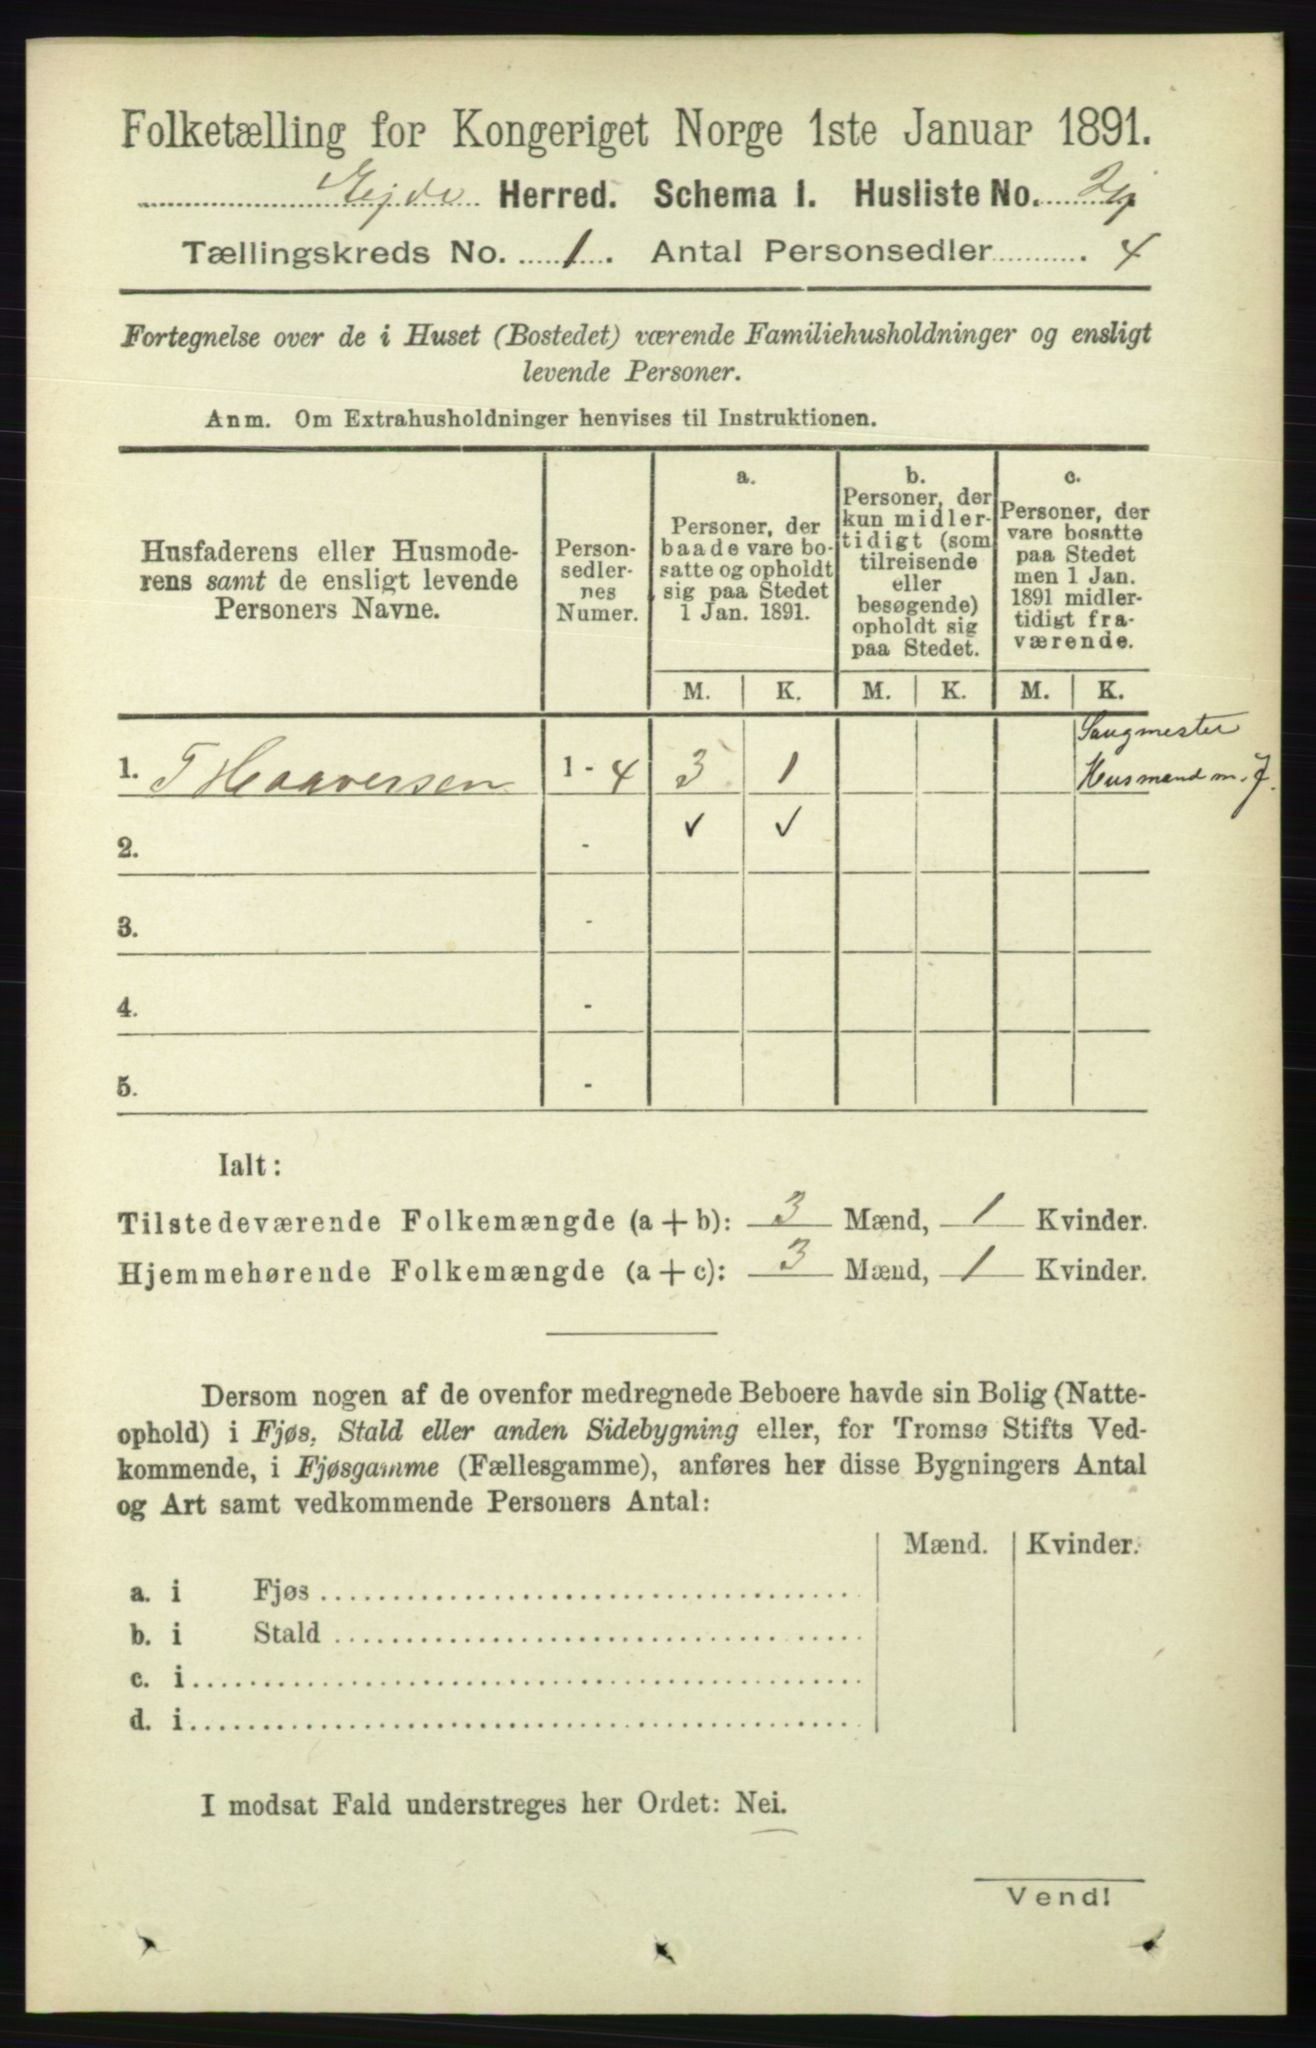 Folketælling for Kongeriget Norge 1ste Januar 1891.
Ejde Herred. Schema 1. Husliste No.
Tællingskreds No. 1. Antal Personsedler 4
Fortegnelse over de i Huset (Bostedet) værende Familiehusholdninger og ensligt
levende Personer.
Anm. Om Extrahusholdninger henvises til Instruktionen.
Husfaderens eller Husmode-
rens samt de ensligt levende
Personers Navne.
Person-
sedler-
nes
Numer.
a.
Personer, der
baade vare bo-
satte og opholdt
sig paa Stedet
1 Jan. 1891.
b.
Personer, der
kun midler-
tidigt (som
tilreisende
eller
besøgende)
opholdt sig
paa Stedet.
c.
Personer, der
vare bosatte
paa Stedet
men 1 Jan.
1891 midler-
tidigt fra-
værende.
M. K. M. K. M. K.
Saugmester
1. T Haaversen 1 - 4 3 1 Husmand m. J.
✓ ✓
2. -
3. -
4. -
5. -
Ialt:
Tilstedeværende Folkemængde (a + b): 3 Mænd, 1 Kvinder.
Hjemmehørende Folkemængde (a + c): 3 Mænd, 1 Kvinder.
Dersom nogen af de ovenfor medregnede Beboere havde sin Bolig (Natte-
ophold) i Fjøs, Stald eller anden Sidebygning eller, for Tromsø Stifts Ved-
kommende, i Fjøsgamme (Fællesgamme), anføres her disse Bygningers Antal
og Art samt vedkommende Personers Antal:
Mænd. Kvinder.
a. i Fjøs
b. i Stald
c. i
d. i
I modsat Fald understreges her Ordet: Nei.
Vend!